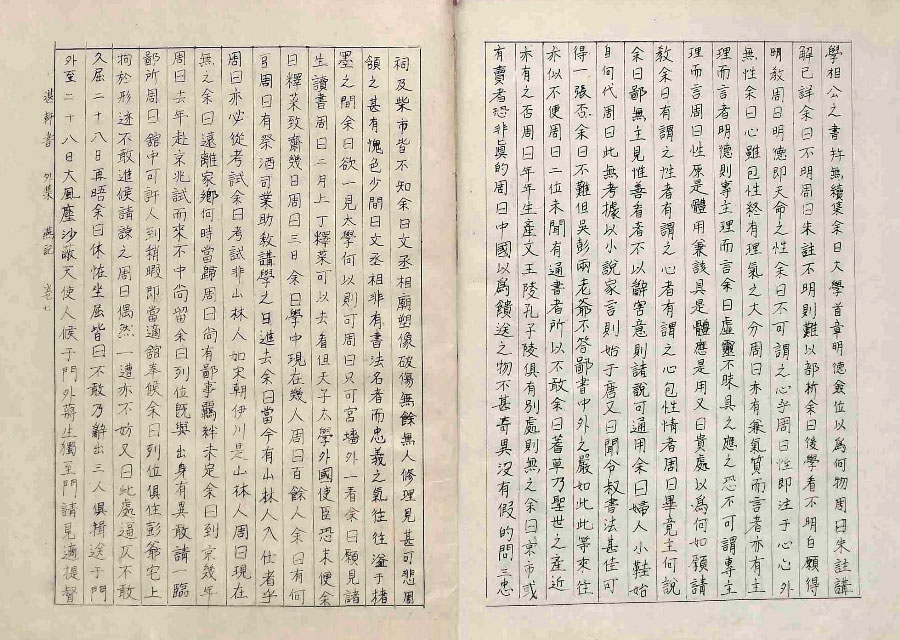 學相公之書雖無續集余曰大學首章明德僉位以爲何物周曰朱註講
解已詳余曰不明周曰朱註不明則難以都析余曰後學看不明白願得
明敎周曰明德卽天命之性余曰不可謂之心乎周曰性卽注于心心外
無性余曰心雖包性終有理氣之大分周曰亦有兼氣質而言者亦有主
理而言者明德則專主理而言余曰虛靈不昧具之應之恐不可謂專主
理而言周曰性原是體用兼該具是體應是用又曰貴處以爲何如願請
敎余曰有謂之性者有謂之心者有謂之心包性情者周曰畢竟主何說
余曰鄙無主見惟善者不以辭害意則諸說可通用余曰婦人小鞋始
自何代周曰此無考據以小說家言則始于唐又曰聞令叔書法甚佳可
得一張否余曰不難但吳彭兩老爺不答鄙書中外之嚴如此此等來往
亦似不便周曰二位未聞有通書者所以不敢余曰蓍草乃聖世之產近
亦有之否周曰年年生產文王陵孔子陵俱有別處則無之余曰京市或
有賣者恐非眞的周曰中國以爲饋送之物不甚奇異沒有假的問三忠
祠及柴市皆不知余曰文丞相廟塑像破傷無餘無人修理見甚可悲周
頷之甚有愧色少間曰文丞相非有書法名者而忠義之氣往往溢于楮
墨之間余曰欲一見太學何以則可周曰只可宮墻外一看余曰願見諸
生讀書周曰二月上丁釋菜可以去看但天子太學外國使臣恐未便余
曰釋菜致齋幾日周曰三日余曰學中現在幾人周曰百餘人余曰有何
官周曰有祭酒司業助敎講學之日進去余曰當今有山林人入仕者乎
周曰亦必從考試余曰考試非山林人如宋朝伊川是山林人周曰現在
無之余曰遠離家鄕何時當歸周曰尙有鄙事羈絆未定余曰到京幾年
周曰去年赴京兆試而來不中尙留余曰列位旣與出身有異敢請一臨
鄙所周曰舘中可許人到稍暇卽當適館奉候余曰列位俱住彭爺宅上
拘於形迹不敢進候請諒之周曰偶然一遭亦不妨又曰此處逼仄不敢
久屈二十八日再晤余曰休恠坐屈皆曰不敢乃辭出三人俱揖送于門
外至二十八日大風塵沙蔽天使人候于門外蔣生獨至門請見適提督
湛軒書 外集 燕記 卷七